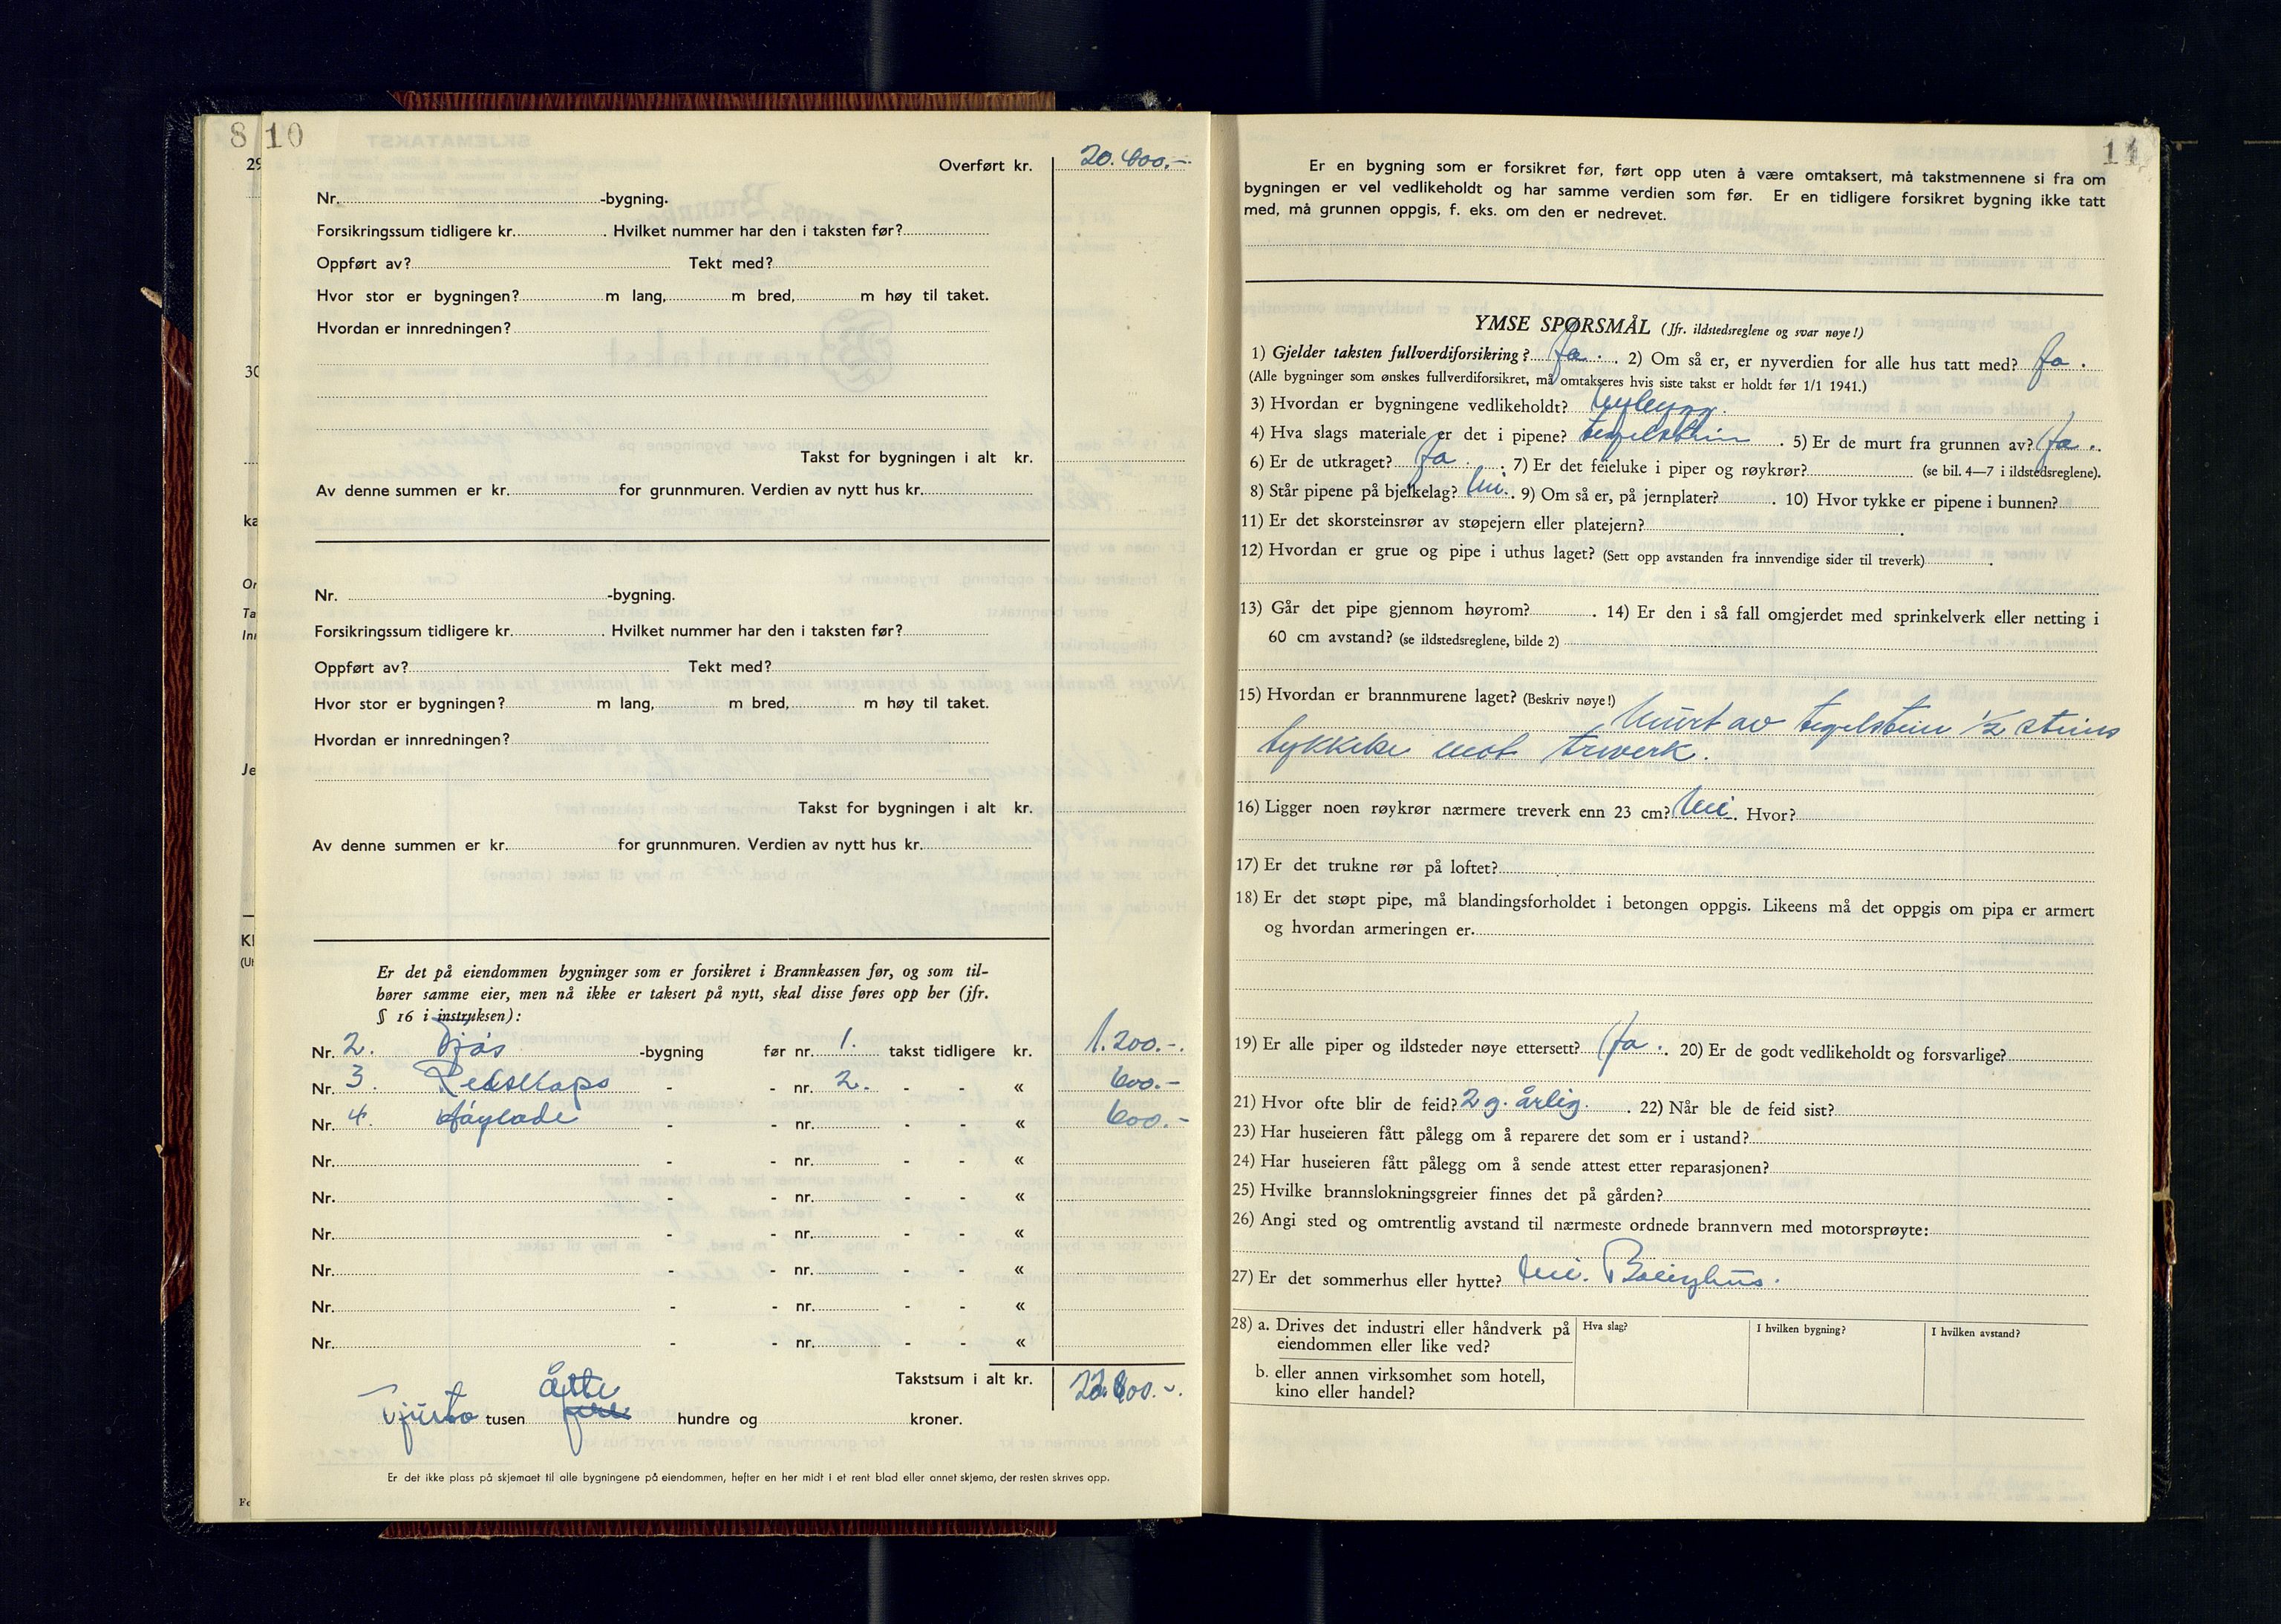 8
10
29
30
ka
Or
Ta
Inn
Je
Kl
(U
Fo
Overført kr. 20.400.-
Nr. -bygning.
Forsikringssum tidligere kr. . Hvilket nummer har den i taksten før?
Oppført av? Tekt med?
Hvor stor er bygningen? m lang, m bred, m høy til taket.
Hvordan er innredningen?
Takst for bygningen i alt kr.
Av denne summen er kr. for grunnmuren. Verdien av nytt hus kr.
Nr. -bygning.
Forsikringssum tidligere kr. . Hvilket nummer har den i taksten før?
Oppført av? Tekt med?
Hvor stor er bygningen? m lang, m bred, m høy til taket.
Hvordan er innredningen?
Takst for bygningen i alt kr.
Av denne summen er kr. for grunnmuren. Verdien av nytt hus kr.
Er det på eiendommen bygninger som er forsikret i Brannkassen før, og som til-
hører samme eier, men nå ikke er taksert på nytt, skal disse føres opp her (jfr.
§ 16 i instruksen):
Nr. 2. Fjøs -bygning før nr. 1. takst tidligere kr. 1.200.-.
Nr. 3. Redskaps - - nr. 2. - - « 600.-
Nr. 4. Høylade - - nr. - - « 600.-
Nr. - - nr. - - «
Nr. - - nr. - - «
Nr. - - nr. - - «
Nr. - - nr. - - «
Nr. - - nr. - - «
Nr. - - nr. - - «
Takstsum i alt kr. 22.800.-.
åtte
Tjueto tusen fire hundre og kroner.
Er det ikke plass på skjemaet til alle bygningene på eiendommen, hefter en her midt i et rent blad eller annet skjema, der resten skrives opp.
11
Er en bygning som er forsikret før, ført opp uten å være omtaksert, må takstmennene si fra om
bygningen er vel vedlikeholdt og har samme verdien som før. Er en tidligere forsikret bygning ikke tatt
med, må grunnen oppgis, f. eks. om den er nedrevet.
YMSE SPØRSMÅL (Jfr. ildstedsreglene og svar nøye!)
1) Gjelder taksten fullverdiforsikring? Ja. . 2) Om så er, er nyverdien for alle hus tatt med? Ja.
(Alle bygninger som ønskes fullverdiforsikret, må omtakseres hvis siste takst er holdt før 1/1 1941.)
3) Hvordan er bygningene vedlikeholdt? Nybygg.
4) Hva slags materiale er det i pipene? tegelstein . 5) Er de murt fra grunnen av? Ja.
6) Er de utkraget? Ja . ; 7) Er det feieluke i piper og røykrør? (se bil. 4—7 i ildstedsreglene).
8) Står pipene på bjelkelag? Nei. . 9) Om så er, på jernplater? . 10) Hvor tykke er pipene i bunnen?
11) Er det skorsteinsrør av støpejern eller platejern? .
12) Hvordan er grue og pipe i uthus laget? (Sett opp avstanden fra innvendige sider til treverk) .
13) Går det pipe gjennom høyrom? . 14) Er den i så fall omgjerdet med sprinkelverk eller netting i
60 cm avstand? (se ildstedsreglene, bilde 2)
15) Hvordan er brannmurene laget? (Beskriv nøye!)
Murt av tegelstein 1/2 steins
tykkelse mot treverk.
16) Ligger noen røykrør nærmere treverk enn 23 cm? Nei. Hvor?
17) Er det trukne rør på loftet?
18) Er det støpt pipe, må blandingsforholdet i betongen oppgis. Likeens må det oppgis om pipa er armert
og hvordan armeringen er.
19) Er alle piper og ildsteder nøye ettersett? Ja. . 20) Er de godt vedlikeholdt og forsvarlige?
21) Hvor ofte blir de feid? 2 g. årlig. . 22) Når ble de feid sist?
23) Har huseieren fått pålegg om å reparere det som er i ustand?
24) Har huseieren fått pålegg om å sende attest etter reparasjonen?
25) Hvilke brannslokningsgreier finnes det på gården?
26) Angi sted og omtrentlig avstand til nærmeste ordnede brannvern med motorsprøyte:
27) Er det sommerhus eller hytte? Nei. Bolighus.
28) a. Drives det industri eller håndverk på
eiendommen eller like ved?
Hva slag? I hvilken bygning? I hvilken avstand?
b. eller annen virksomhet som hotell,
kino eller handel?